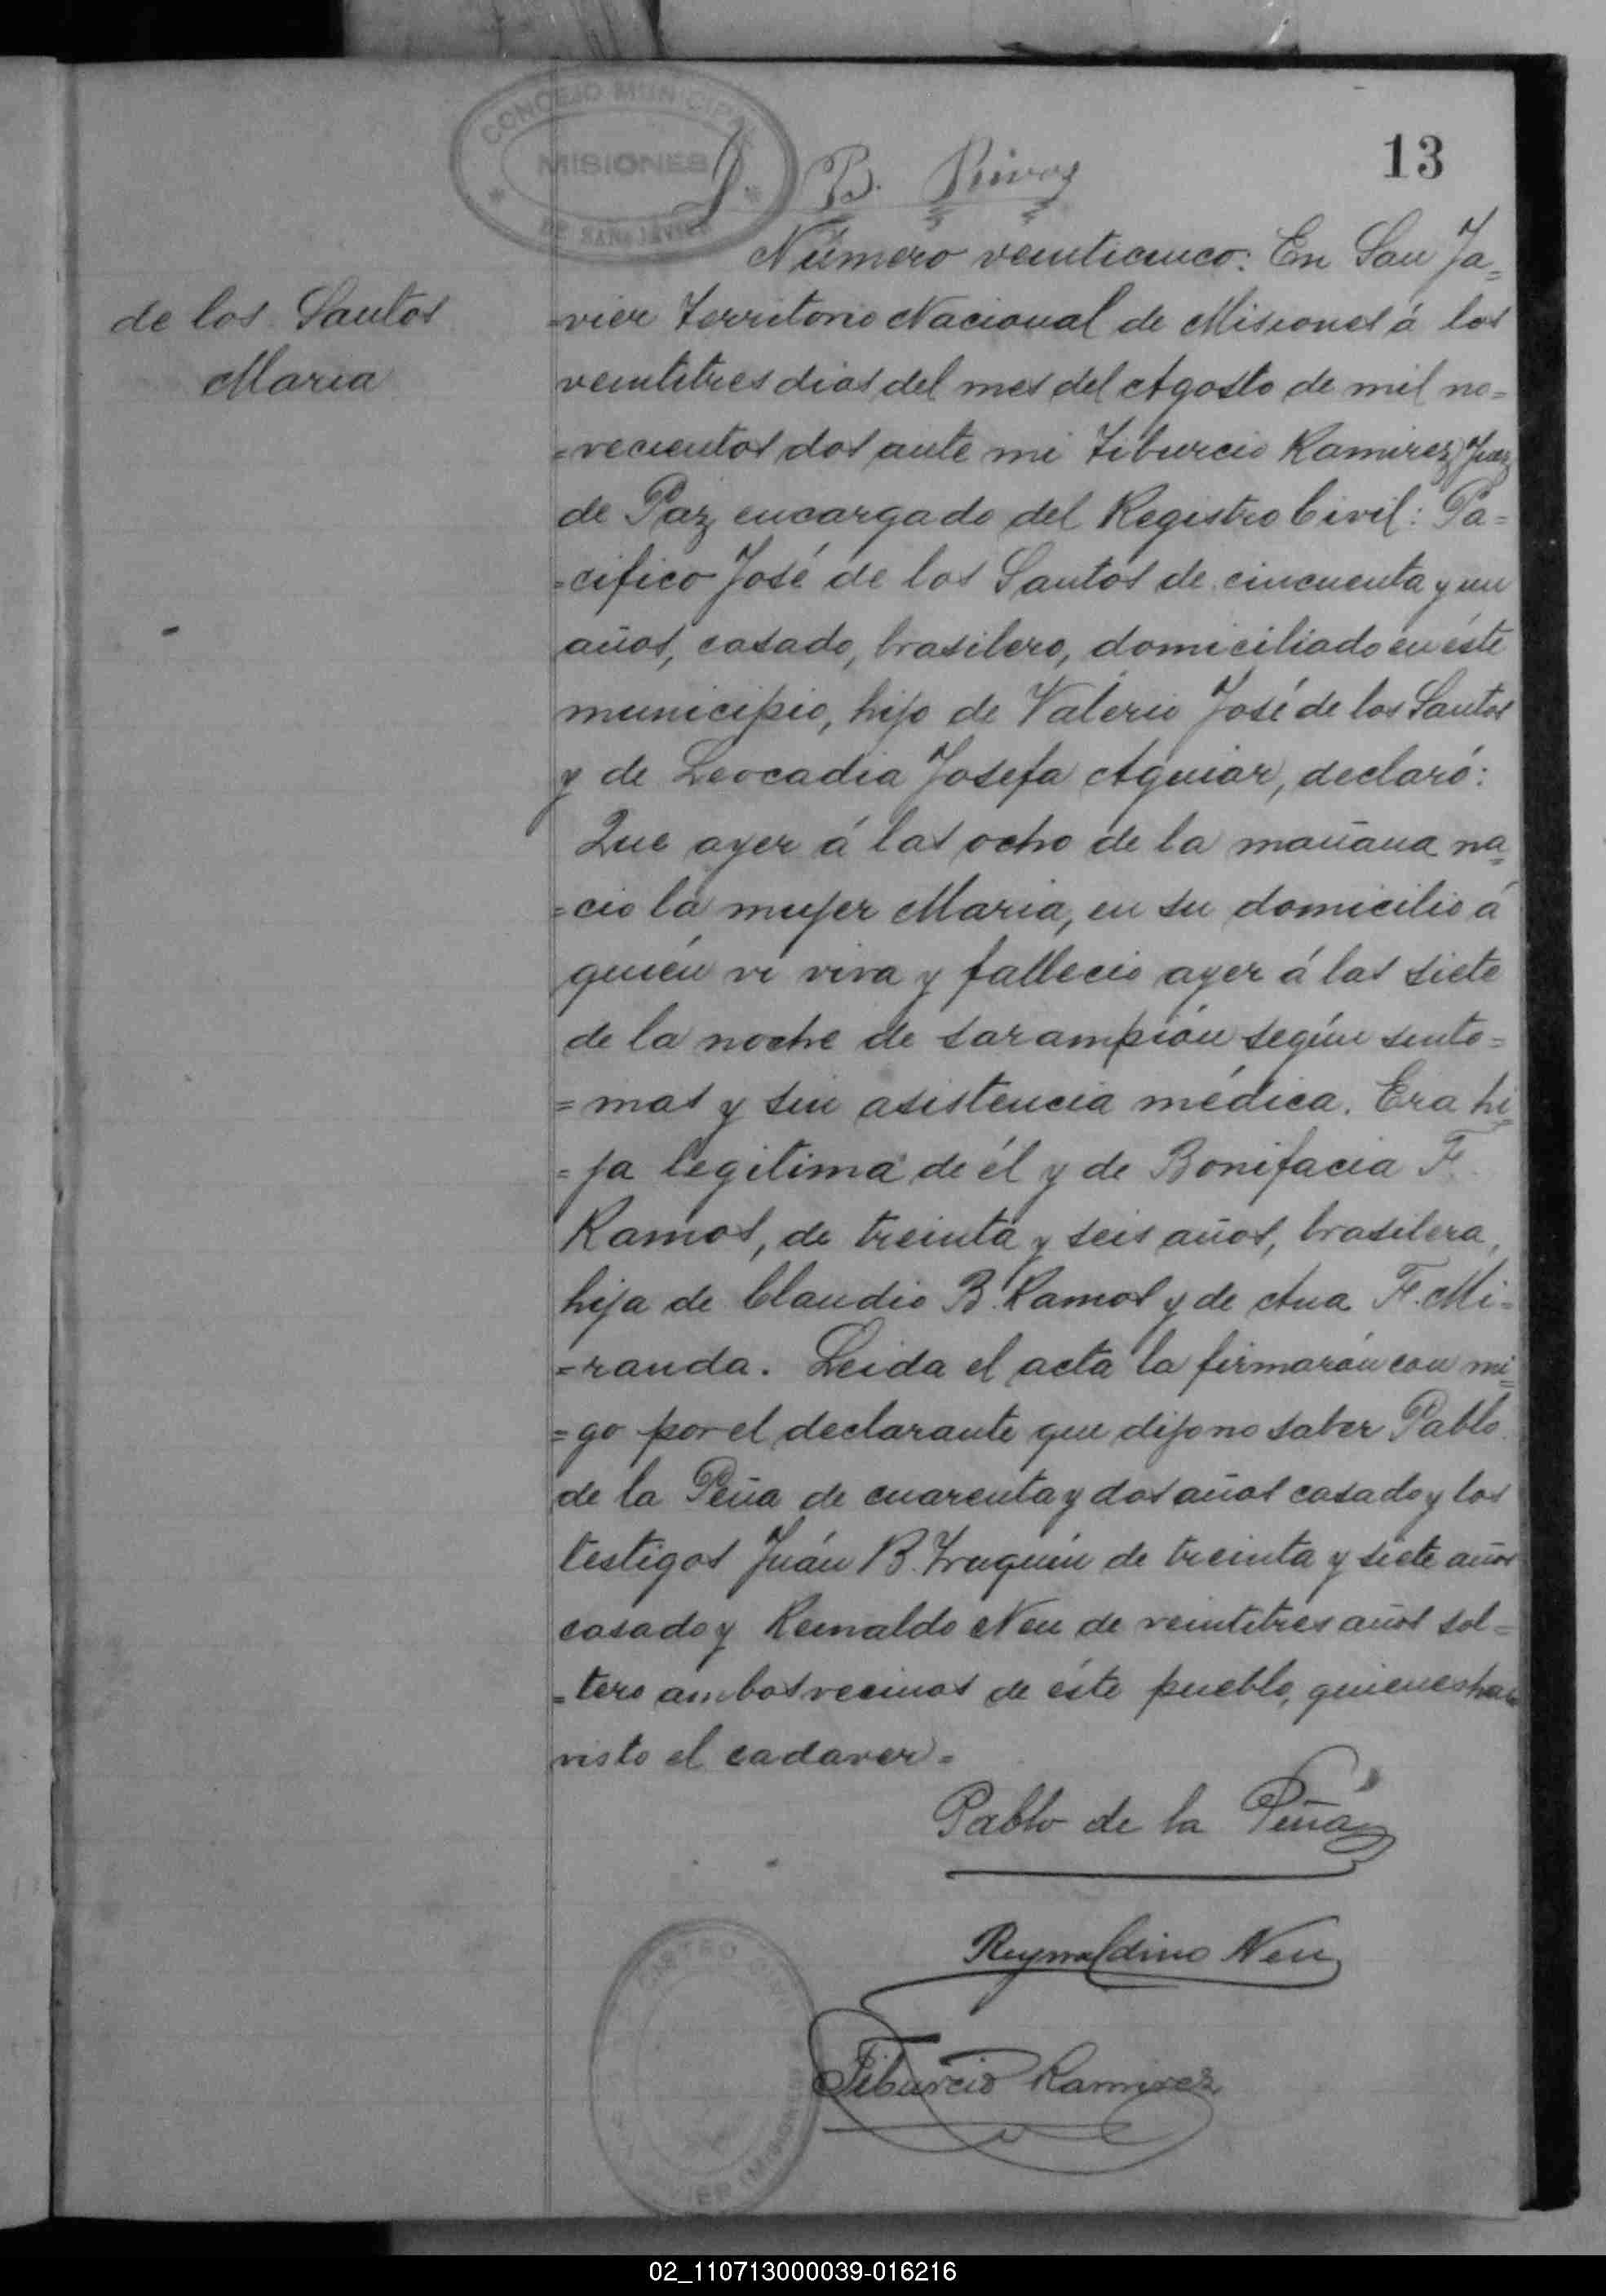 CONCEJO MUNICIPAL
MISIONES
DE SAN JAVIER
B. Rivas
13
Número veinticinco: En San Ja=
de los Santos
Maria
=vier Territorio Nacional de Misiones á los
veintitres dias del mes del Agosto de mil no=
=vecientos dos ante mi Tiburcio Ramirez, Juez
de Paz, encargado del Registro Civil: Pa=
=cifico José de los Santos de cincuenta y un
años, casado, brasilero, domiciliado en éste
municipio, hijo de Valerio José de los Santos
y de Leocadia Josefa Aguiar, declaró:
Que ayer á las ocho de la mañana na=
=cio la mujer Maria, en su domicilio á
quién vi viva y fallecio ayer á las siete
de la noche de sarampión según sinto=
=mas y sin asistencia médica. Era hi=
=ja legitima de él y de Bonifacia F.
Ramos, de treinta y seis años, brasilera,
hija de Claudio B. Ramos y de Ana F. Mi=
=randa. Leida el acta la firmarón con mi=
=go por el declarante que dijo no saber Pablo
de la Peña de cuarenta y dos años casado y los
testigos Juán B. de treinta y siete años
casado y Reinaldo Neu de veintitres años sol=
=tero ambos vecinos de éste pueblo, quienes han
visto el cadaver=
Pablo de la Peña
Reynaldino Neu
Tiburcio Ramirez
02_110713000039-016216